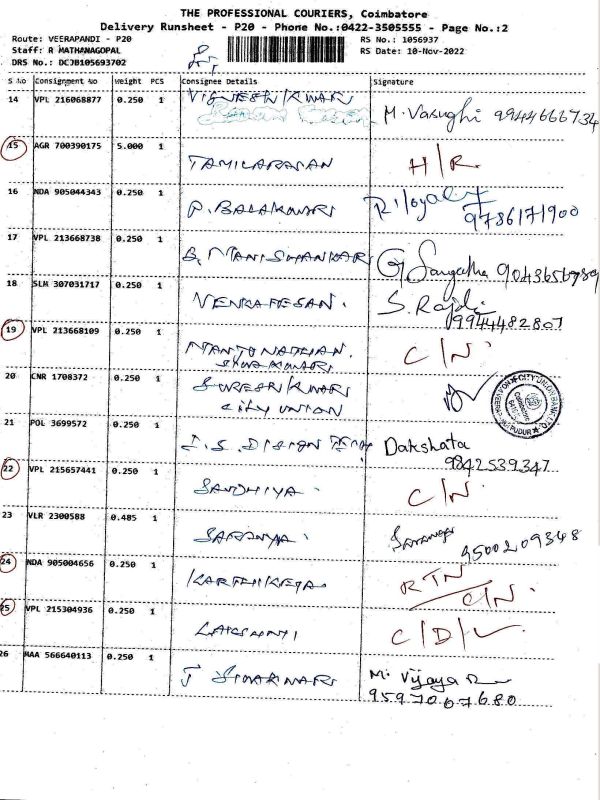 THE PROFESSIONAL COURIERS, Coimbatore
Delivery Runsheet - P20 - Phone No.:0422-3505555 - Page No.:2
Route: VEERAPANDI - P20 RS No.: 1056937
Staff: R MATHANAGOPAL RS Date: 10-Nov-2022
DRS No.: DCJB105693702
S No Consignment No Weight PCS Consignee Details Signature
14 VPL 216068877 0.250 1 VIGNESH KUMAR M. Vasughi 9944666734
15 AGR 700390175 5.000 1 TAMILARASAN H/R
16 NDA 905044343 0.250 1 P. BALAKUMAR 9786171900
17 VPL 213668738 0.250 1 G. MANISHANKAR G Sangatha
18 SLM 307031717 0.250 1 VENKATESAN. S. Rajdi
9944482807
19 VPL 213668109 0.250 1 C/N
SIVAKUMAR
20 CNR 1708372 0.250 1 SURESH KUMAR
CITY UNION
21 POL 3699572 0.250 1 Dakshata
9842539347
22 VPL 215657441 0.250 1 SANDHIYA. C/N
23 VLR 2300588 0.485 1 SARANYA. 9500209348
24 NDA 905004656 0.250 1 KARTHIKEYA. RTN
C/N.
25 VPL 215304936 0.250 1 LAKSHMI C/D/L
26 MAA 566640113 0.250 1 J SIVAKUMAR M. Vijaya
9597067680